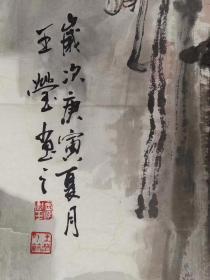 歲次庚寅夏月
王莹画之